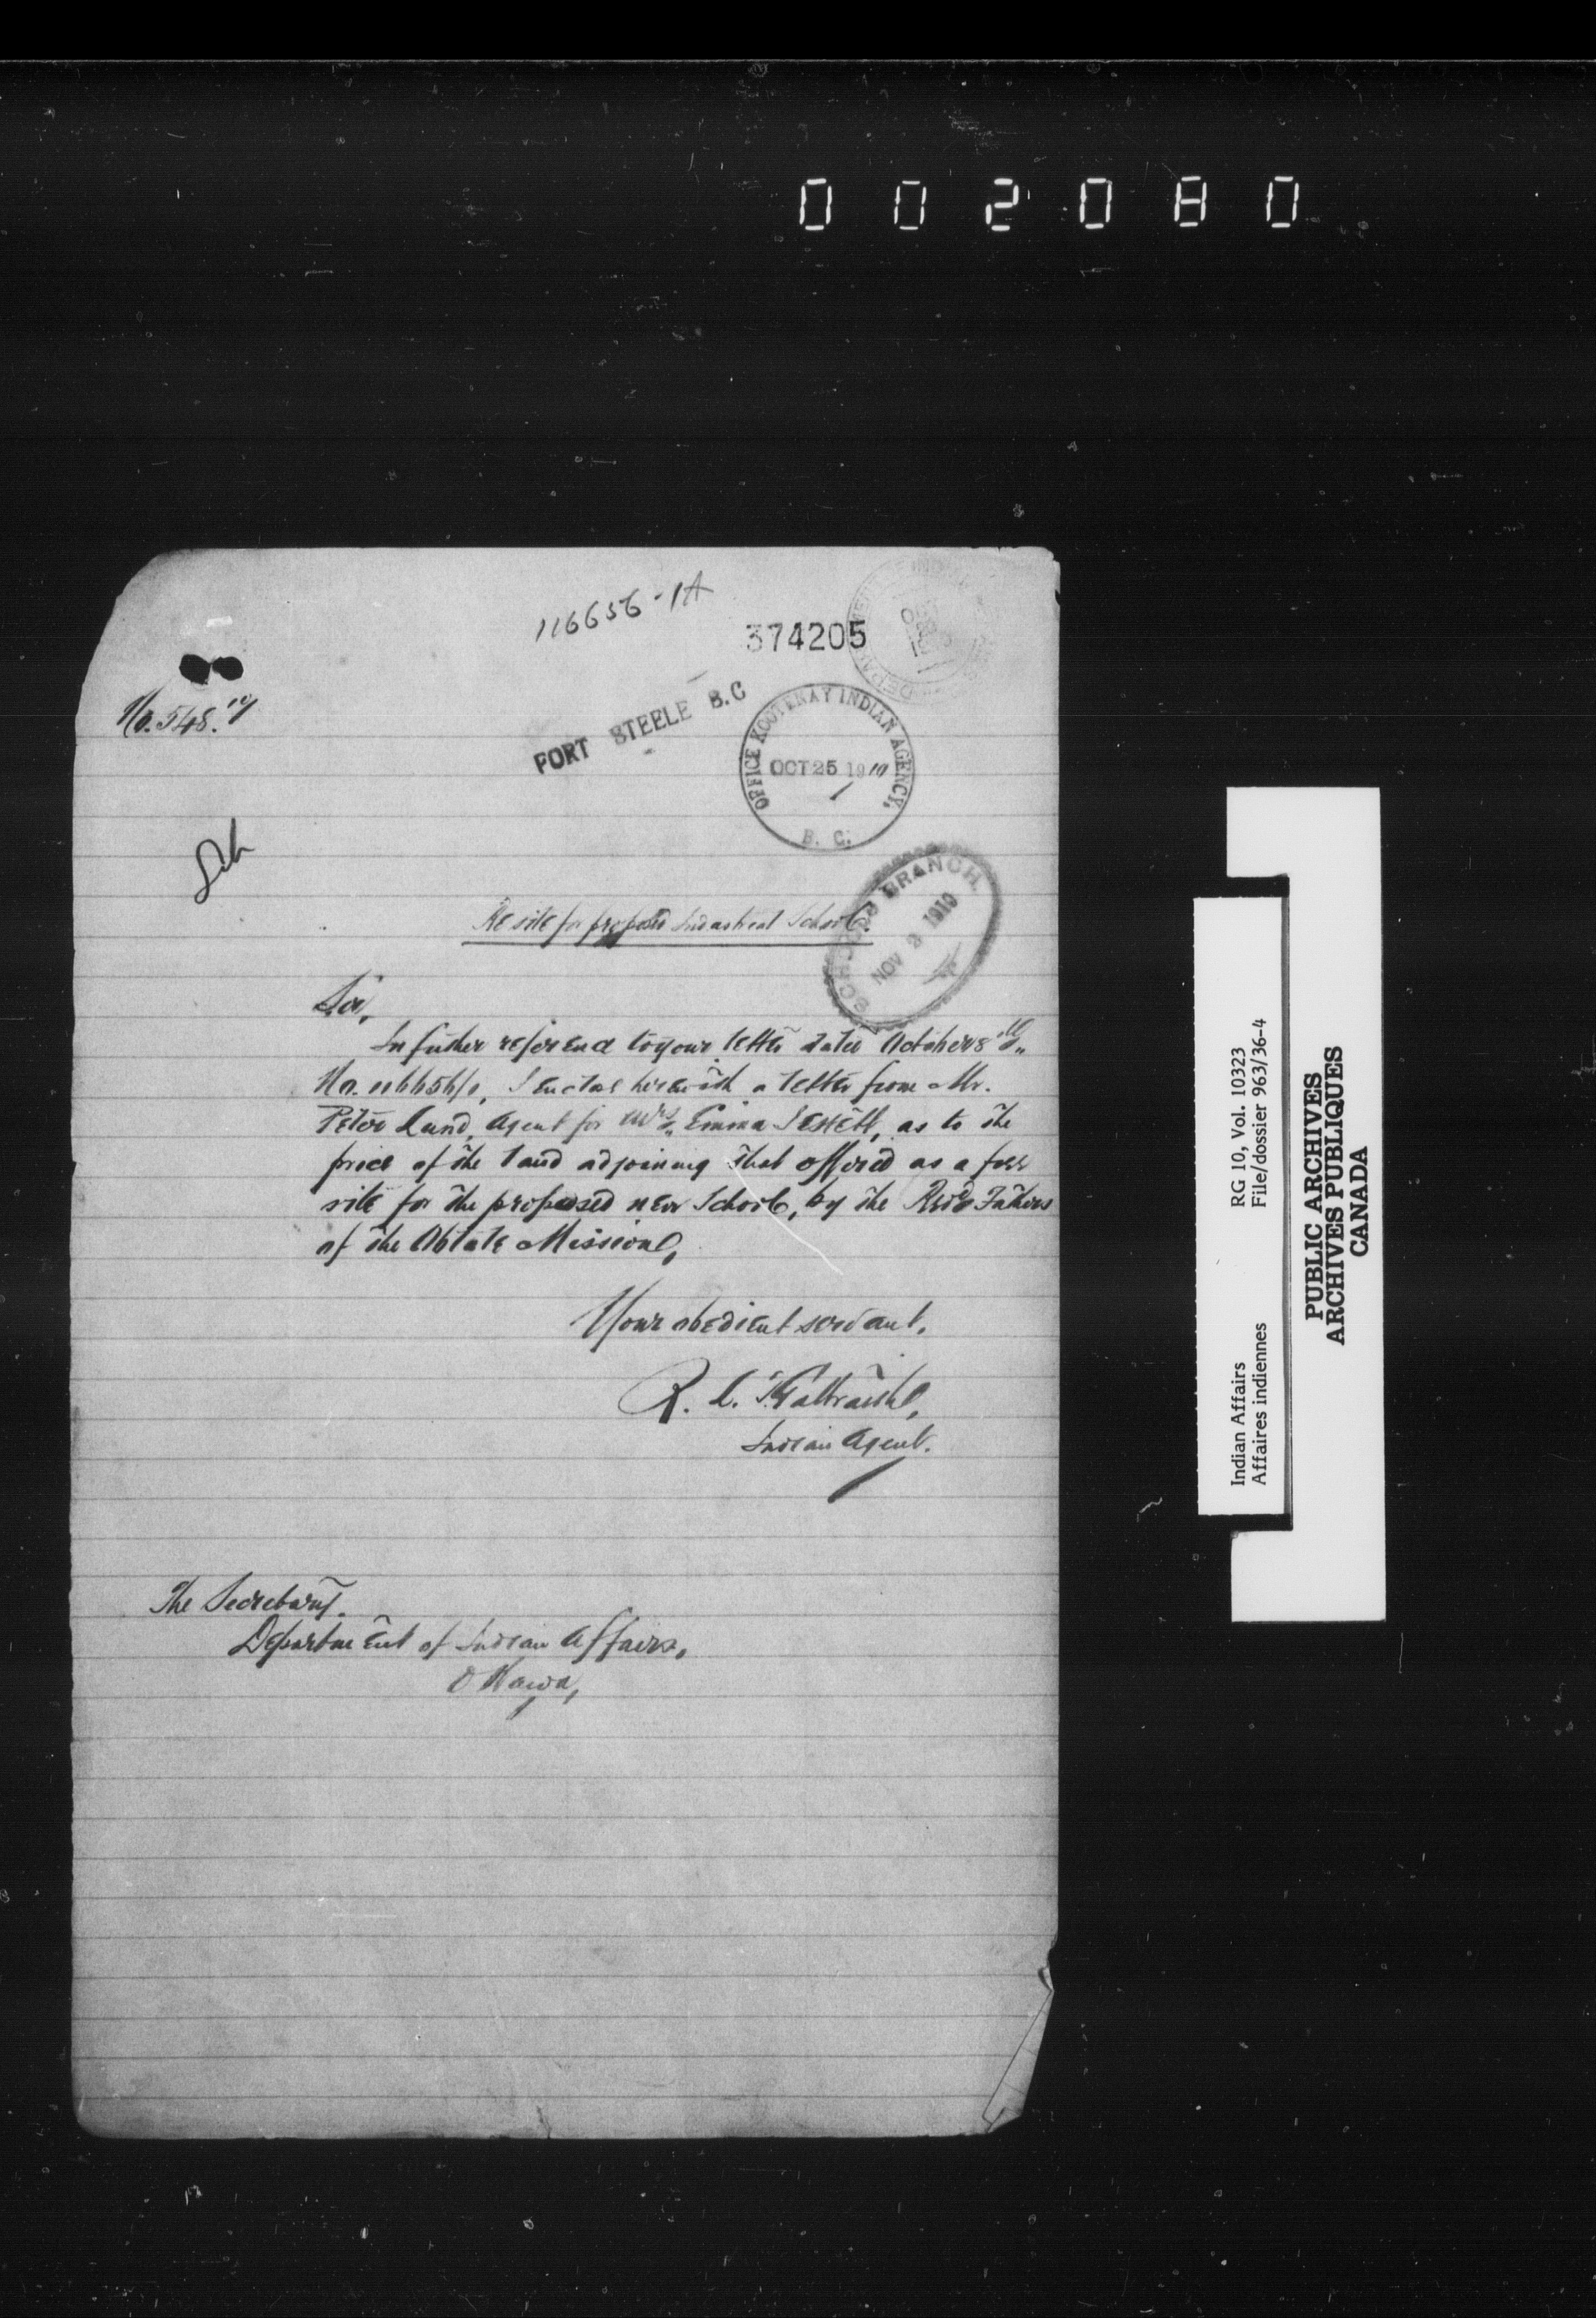 002080
116656-1A
374205
No. 548.
FORT STEELE B.C
OFFICE KOOTENAY INDIAN AGENCY,
OCT 25 1910
B. C.
SCHOOLS BRANCH.
NOV 2 1910
Re site for proposed Industrial School.
Sir,
In further reference to your letter dated October 8
No. 116656/1, I enclose herewith a letter from Mr.
Peter Lund, Agent for Mrs. Emma as to the
price of the land adjoining that offered as a free
site for the proposed new School, by the Revd Fathers
of the Oblate Mission,
Your obedient servant,
R. L. T. Galbraith,
Indian Agent.
The Secretary.
Department of Indian Affairs,
Ottawa,
Indian Affairs RG 10, Vol. 10323
Affaires indiennes File/dossier 963/36-4
PUBLIC ARCHIVES
ARCHIVES PUBLIQUES
CANADA